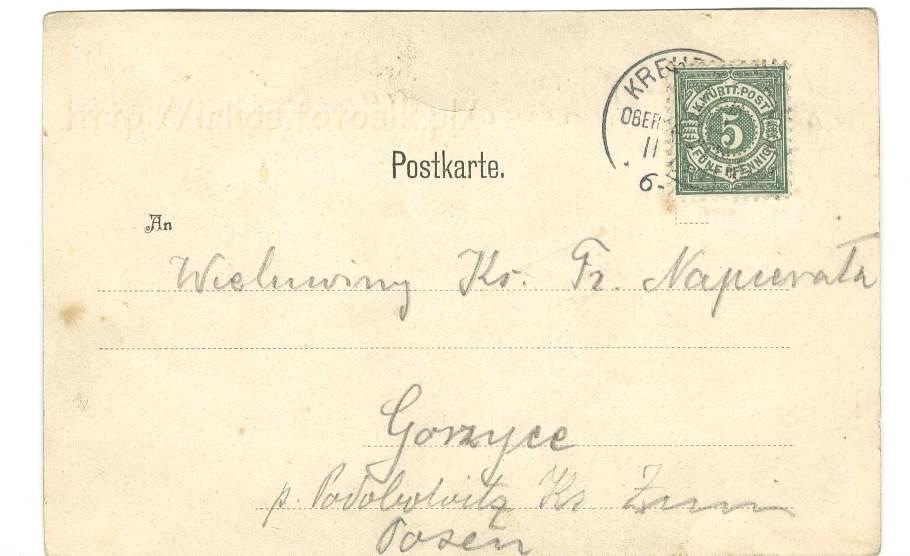 http://irkds.fotosik.pl/
KREU
OBER
11
6-
K.WÜRTT.POST
5
FÜNF PFENNIG
Postkarte.
An
Wielmożny Ks. Fr. Napierała
Gorzyce
p. Podobowitz Ks. Znin
Posen